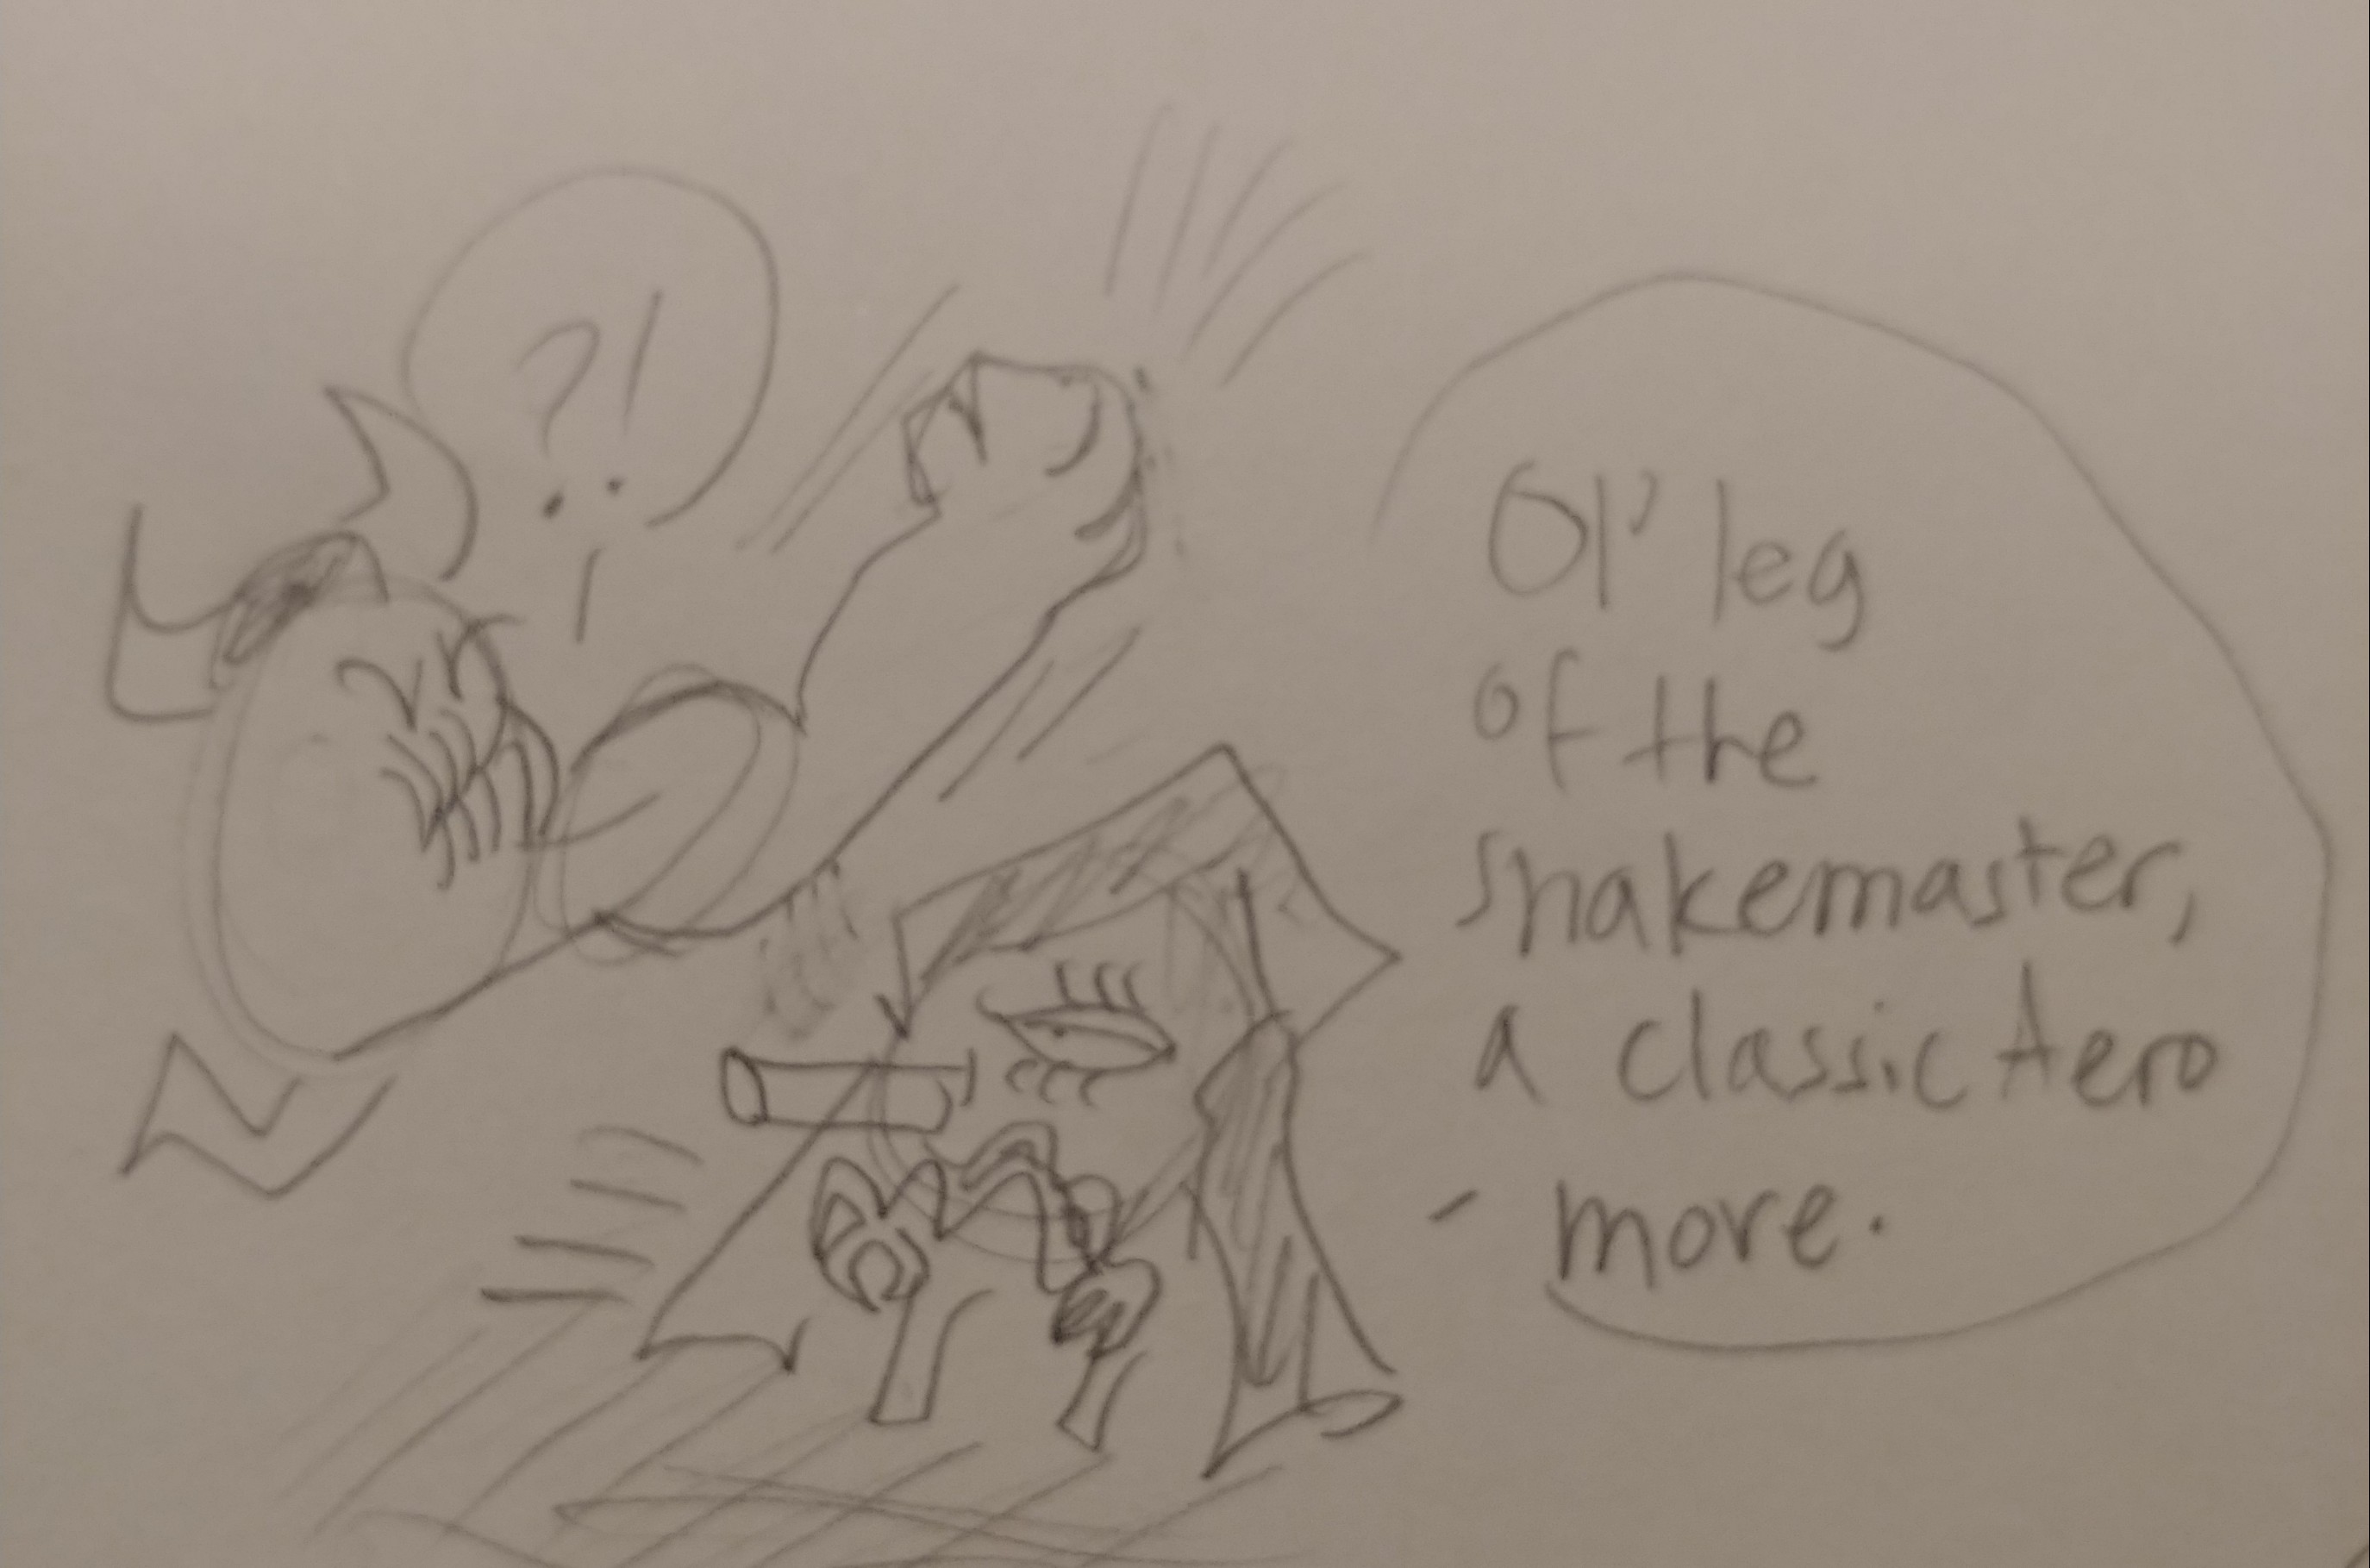 ?!
Ol' leg
of the
snakemaster,
a classic Aero
- more.